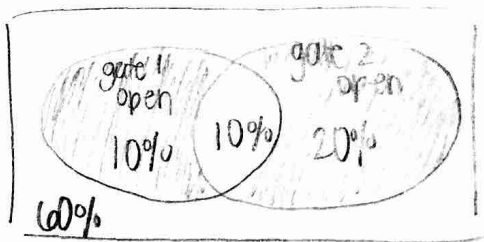 gate 1
open
10%
10%
gate 2
open
20%
60%